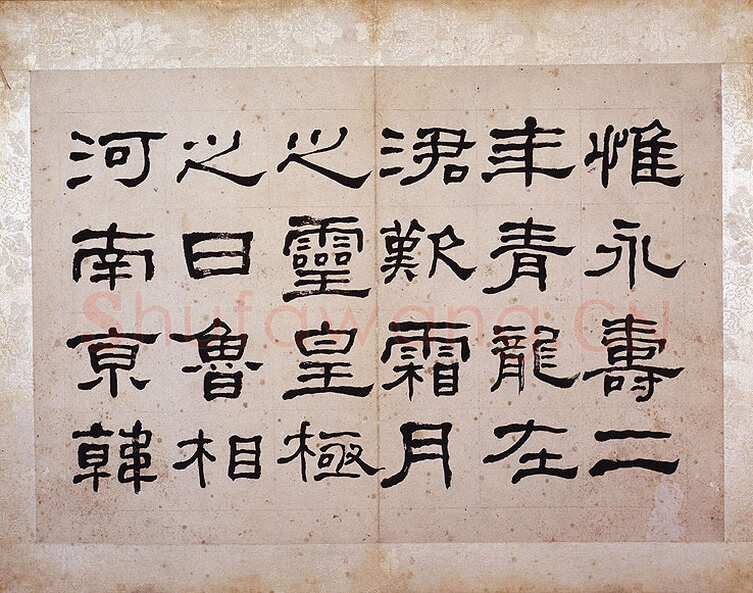 惟永壽二
年青龍在
涒歎霜月
之靈皇極
之日魯相
河南京韓
Shufawang.CN